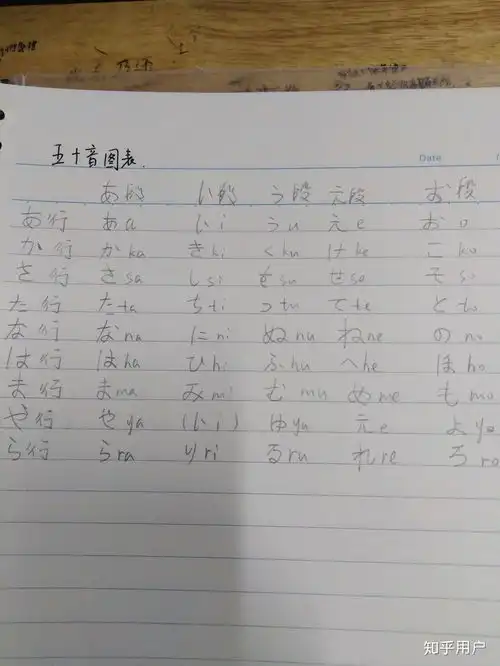 五十音图表.
Date
あ段 い段 う段 え段 お段
あ行 あa いi うu えe おo
か行 かka きki くku けke こko
さ行 さsa しsi すsu せse そso
た行 たta ちti つtu てte とto
な行 なna にni ぬnu ねne のno
は行 はha ひhi ふhu へhe ほho
ま行 まma みmi むmu ぬme もmo
や行 やya (いi) ゆyu えe よyo
ら行 らra りri るru れre ろro
知乎用户